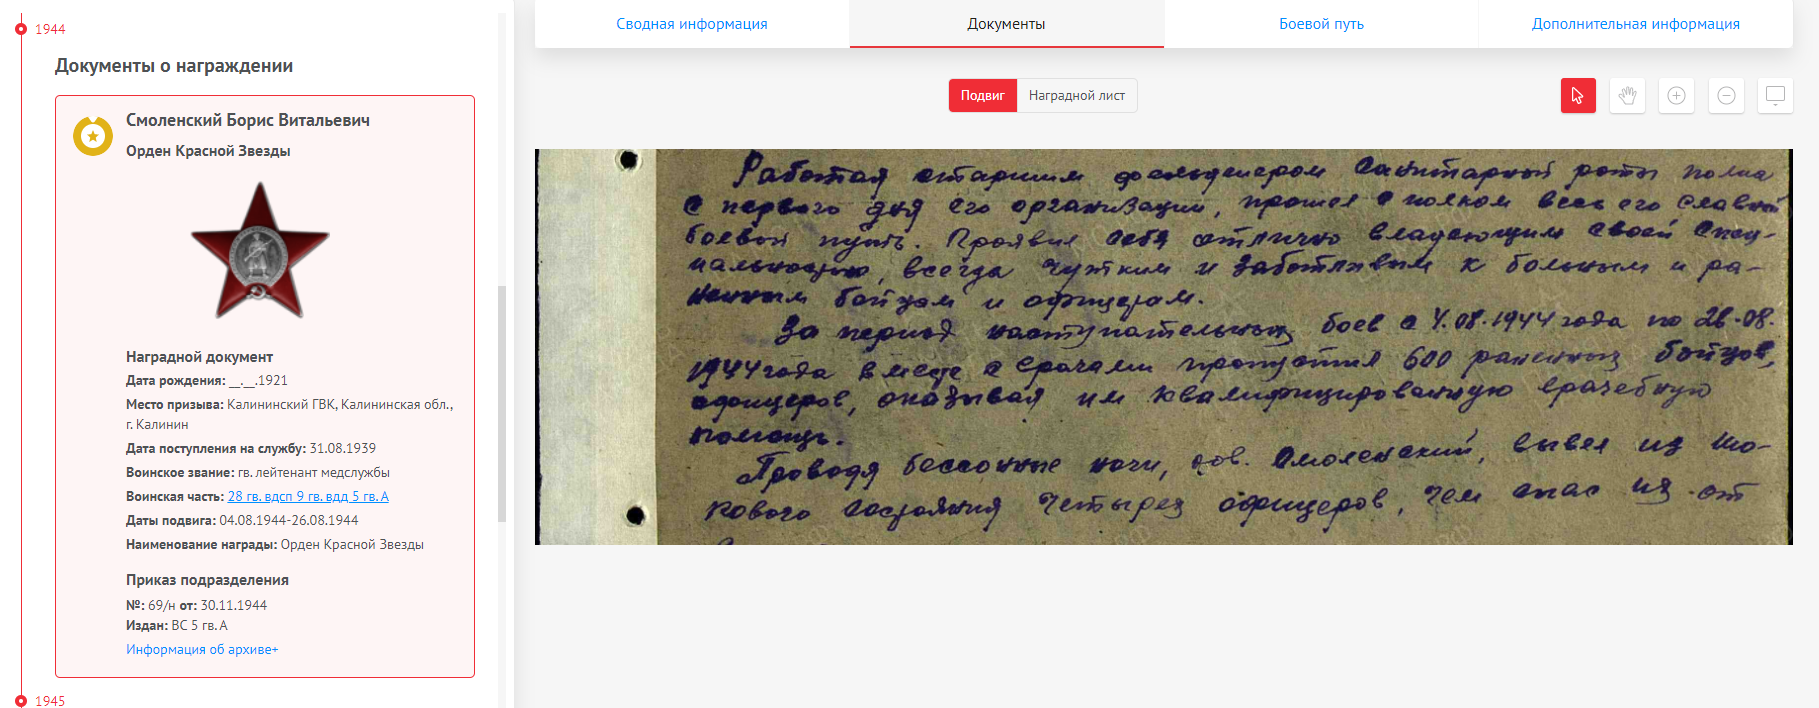 1944
Документы о награждении
Смоленский Борис Витальевич
Орден Красной Звезды
Наградной документ
Дата рождения: __.__.1921
Место призыва: Калининский ГВК, Калининская обл.,
г. Калинин
Дата поступления на службу: 31.08.1939
Воинское звание: гв. лейтенант медслужбы
Воинская часть: 28 гв. вдсп 9 гв. вдд 5 гв. А
Даты подвига: 04.08.1944-26.08.1944
Наименование награды: Орден Красной Звезды
Приказ подразделения
№: 69/н от: 30.11.1944
Издан: ВС 5 гв. А
Информация об архиве+
1945
Сводная информация
Документы
Боевой путь
Дополнительная информация
Подвиг
Наградной лист
Работая старшим фельдшером санитарной роты полка
с первого дня его организации, прошел с полком весь его славный
боевой путь. Проявил себя отлично владеющим своей специ-
альностью, всегда чутким и заботливым к больным и ра-
неным бойцам и офицерам.
За период наступательных боев с 4.08.1944 года по 26.08.
1944 года вместе с врачами пропустил 600 раненых бойцов,
офицеров, оказывая им квалифицированную врачебную
помощь.
Проводя бессонные ночи, тов. Смоленский, вывел из шо-
кового состояния четырех офицеров, чем спас их от